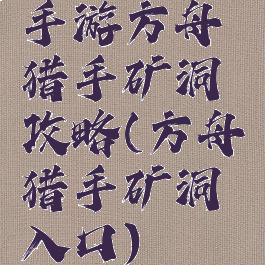 手游方舟
猎手矿洞
攻略(方舟
猎手矿洞
入口)